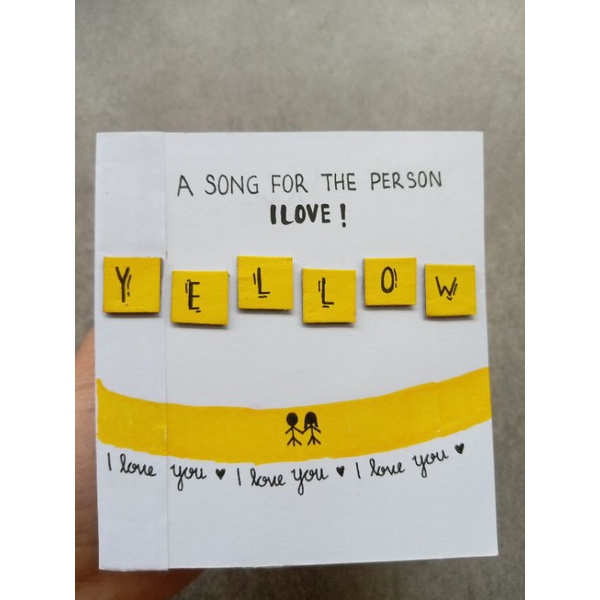 A SONG FOR THE PERSON
I LOVE!
YELLOW
I love you ♥ I love you ♥ I love you ♥